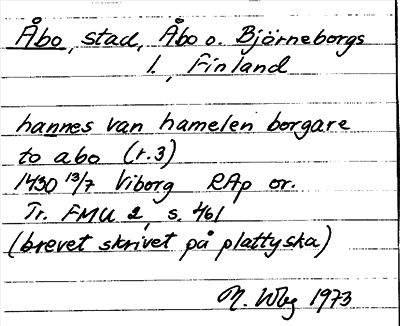 Åbo, stad, Åbo o. Björneborgs
l., Finland
hannes van hamelen borgare
to abo (r.3)
1430 13/7 Viborg RAp or.
Tr. FMU 2, s. 461
(brevet skrivet på plattyska)
N. Wbg 1973